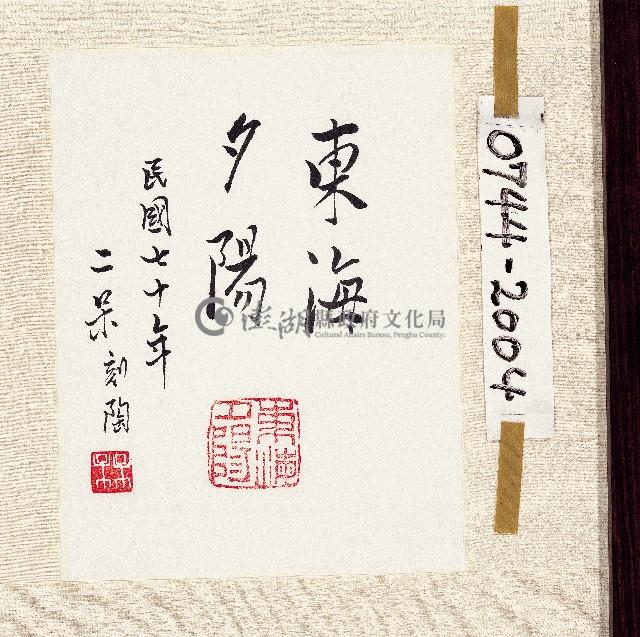 東海
夕陽
民國七十年
二呆刻陶
東海
夕陽
呆
0744-2004
澎湖縣政府文化局
Cultural Affairs Bureau, Penghu County.